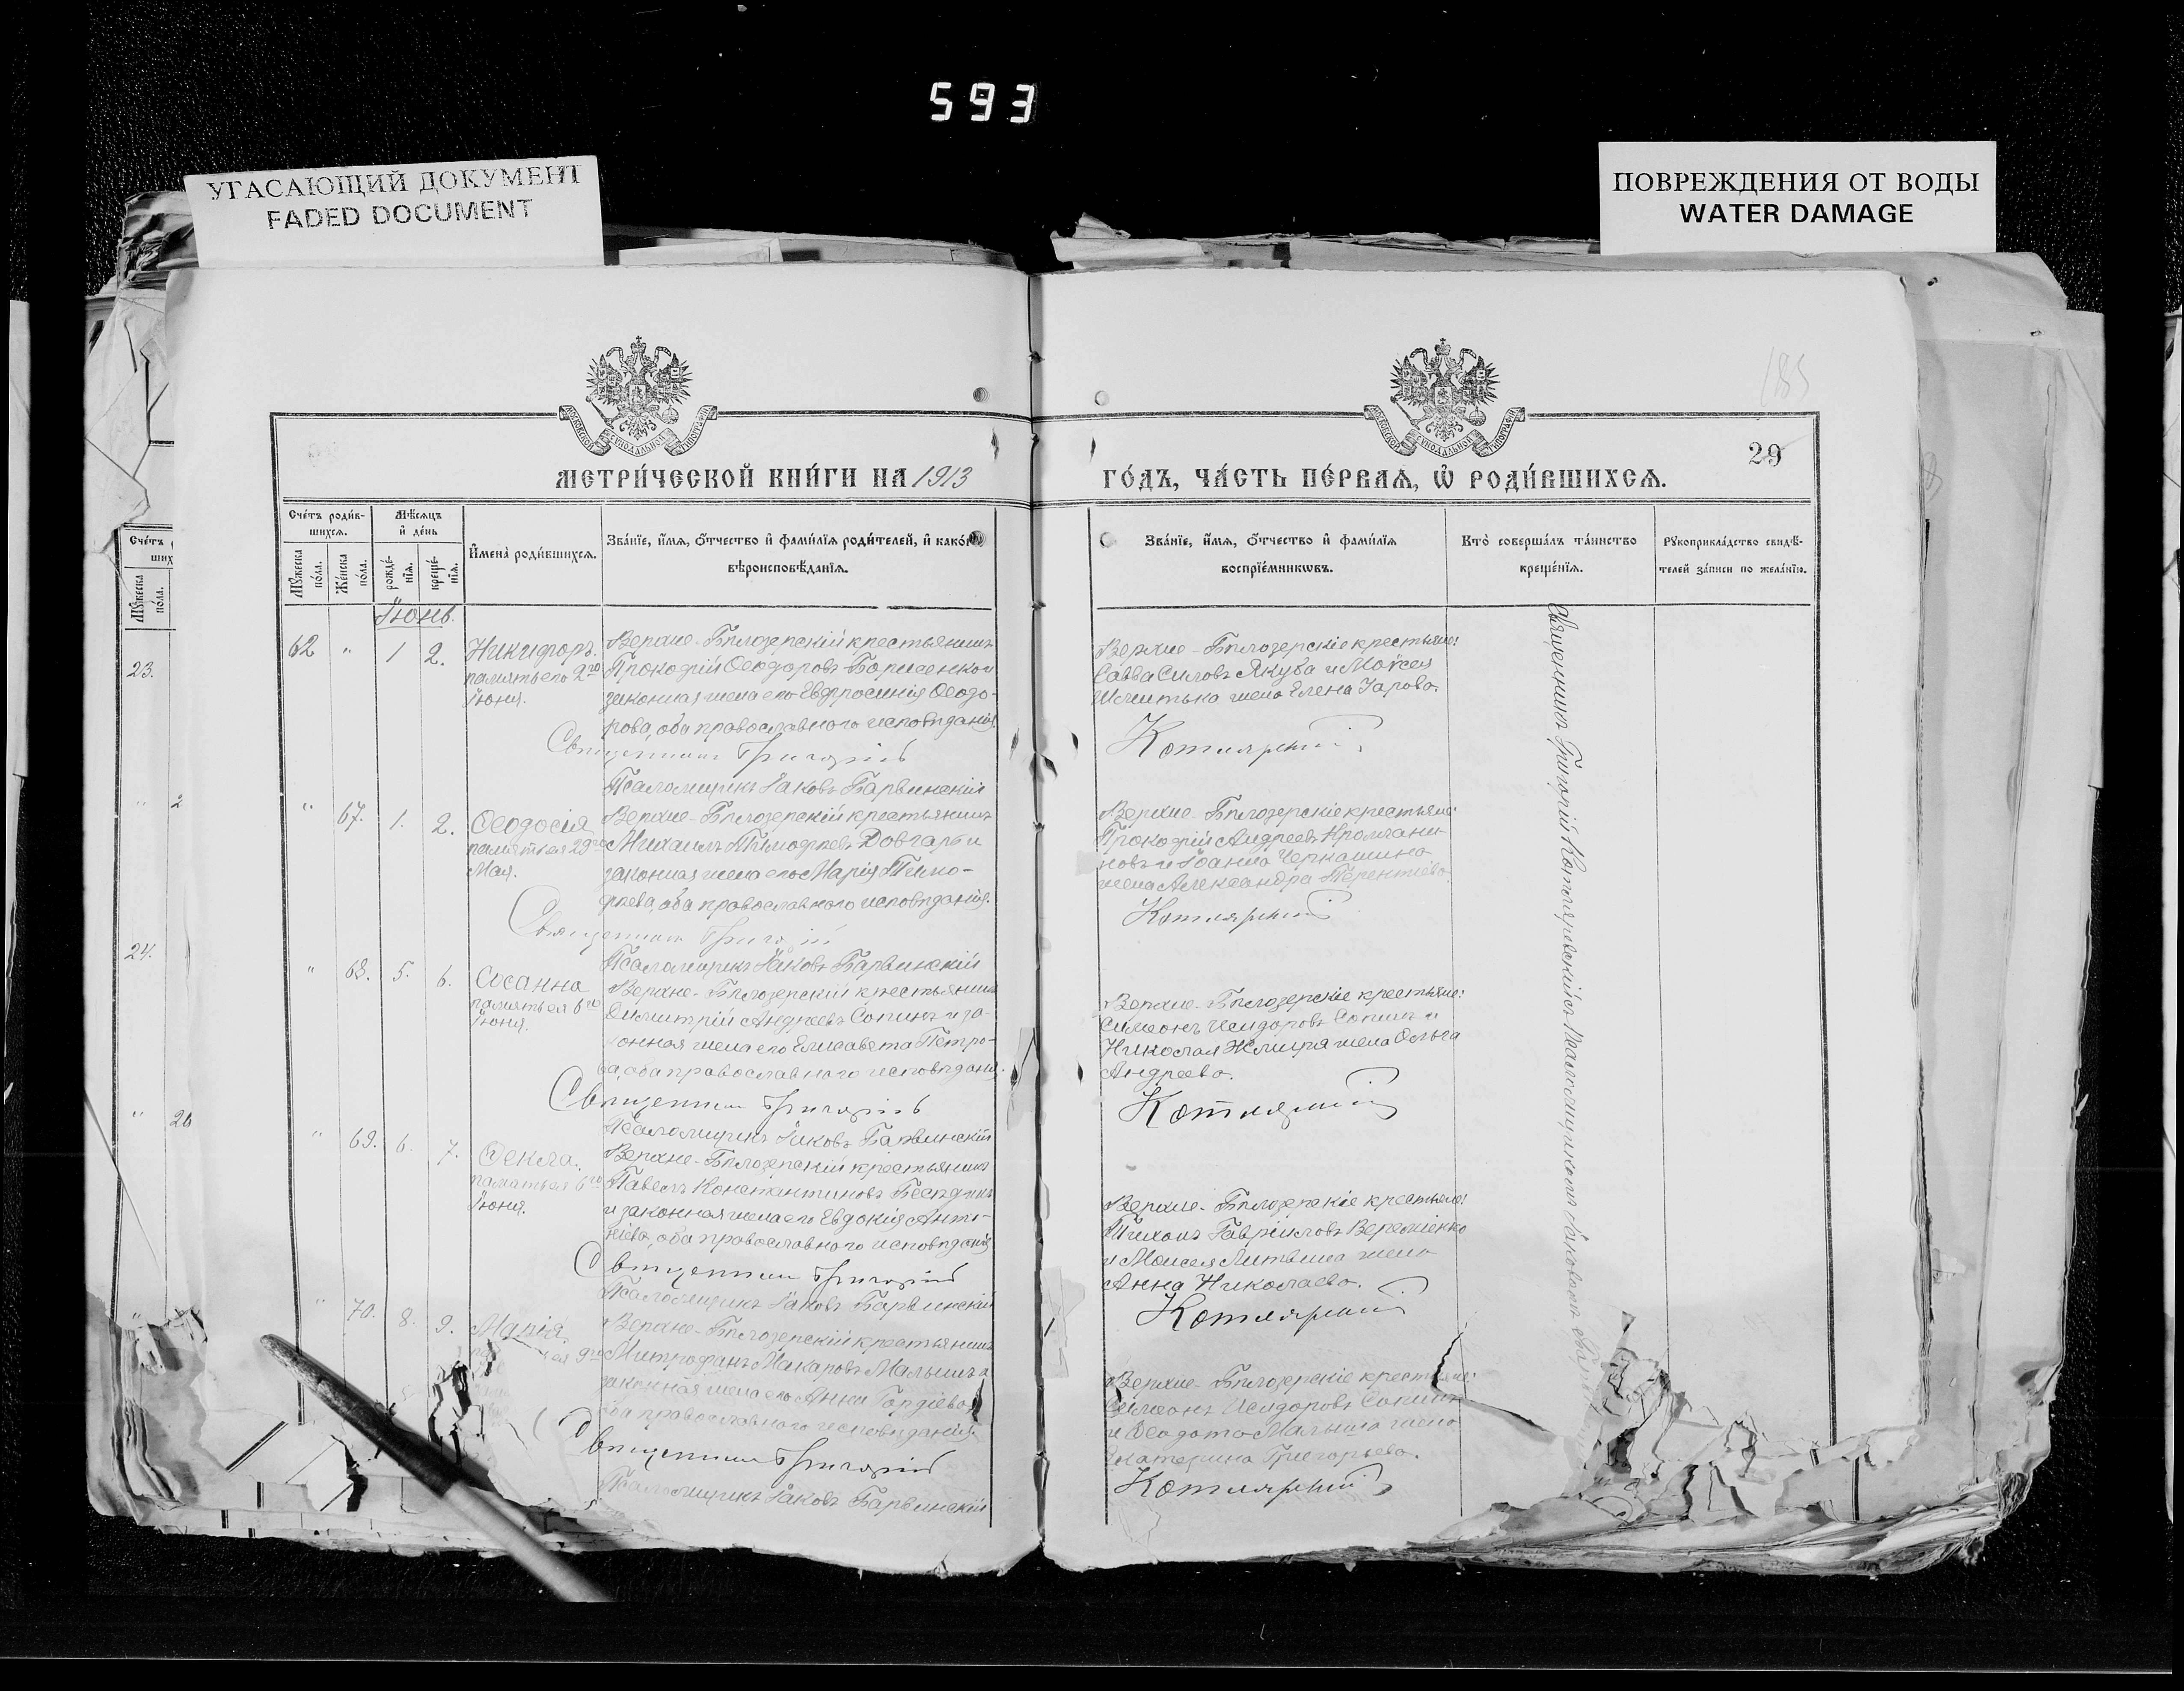 593
УГАСАЮЩИЙ ДОКУМЕНТ
FADED DOCUMENT
ПОВРЕЖДЕНИЯ ОТ ВОДЫ
WATER DAMAGE
185
29
МЕТРИ́ЧЕСКОЙ КНИ́ГИ НА 1913
ГО́ДЪ, ЧА́СТЬ ПЕ́РВАѦ, Ѡ҆ РОДИ́ВШИХСѦ.
Сче́тъ роди́в-
шихсѧ.
Мꙋ́жеска
по́ла.
Же́нска
по́ла.
Мѣ́сѧцъ
и҆ де́нь
рожде́-
нїѧ.
креще́-
нїѧ.
И҆мена̀ роди́вшихсѧ.
Зва́нїе, и҆́мѧ, ѻ҆́тчество и҆ фами́лїѧ роди́телей, и҆ како́гѡ
вѣроисповѣ́данїѧ.
Зва́нїе, и҆́мѧ, ѻ҆́тчество и҆ фами́лїѧ
воспрїе́мникѡвъ.
Кто̀ соверша́лъ та́инство
креще́нїѧ.
Рꙋкоприкла́дство свидѣ́-
телей за́писи по жела́нїю.
Іюнь.
62 " 1 2.
Никифоръ.
память его 2го
Іюня.
Верхне-Бѣлозерскій крестьянинъ
Прокофій Ѳеодоровъ Борисенко и
законная жена его Евфросинія Ѳеодо-
рова, оба православнаго исповѣданія.
Священникъ Григорій
Псаломщикъ Іаковъ Барвинскій
Верхне-Бѣлозерскіе крестьяне:
Савва Силовъ Якуба и Моѵсея
Шмитька жена Елена Уарова.
Котляревскій
" 67. 1. 2.
Ѳеодосія
память ея 29го
Мая.
Верхне-Бѣлозерскій крестьянинъ
Михаилъ Тимоѳеевъ Довгаль и
законная жена его Марія Тимо-
ѳеева, оба православнаго исповѣданія.
Священникъ Григорій
Псаломщикъ Іаковъ Барвинскій
Верхне-Бѣлозерскіе крестьяне:
Прокофій Андреевъ
и Іоанна Черкашина
жена Александра Терентіева.
Котляревскій
" 68. 5. 6.
Сосанна
память ея 6го
Іюня.
Верхне-Бѣлозерскій крестьянинъ
Димитрій Андреевъ Сопинъ и за-
конная жена его Елисавета Петро-
ва, оба православнаго исповѣданія.
Священникъ Григорій
Псаломщикъ Іаковъ Барвинскій
Верхне-Бѣлозерскіе крестьяне:
Симеонъ Исидоровъ Сопинъ и
Николая Жмиря жена Ольга
Андреева.
Котляревскій
" 69. 6. 7.
Ѳекла.
память ея 6го
Іюня.
Верхне-Бѣлозерскій крестьянинъ
Павелъ Константиновъ
и законная жена его Евдокія Анто-
ніева, оба православнаго исповѣданія
Священникъ Григорій
Псаломщикъ Іаковъ Барвинскій
Верхне-Бѣлозерскіе крестьяне:
Тихонъ Гавріиловъ Веремієнко
и Моисея Литвина жена
Анна Николаева.
Котляревскій
" 70. 8. 9.
Марія.
ея 9го
Верхне-Бѣлозерскій крестьянинъ
Митрофанъ Макаровъ Малышъ и
законная жена его Анна Гордіева,
оба православнаго исповѣданія.
Священникъ Григорій
Псаломщикъ Іаковъ Барвинскій
Верхне-Бѣлозерскіе крестьяне:
Симеонъ Исидоровъ Сопинъ
и Ѳеодота Малыша жена
Екатерина Григорьева.
Котляревскій
Священникъ Григорій Котляревскій съ Псаломщикомъ Іаковомъ
Сче́тъ
ших
Мꙋ́жеска
по́ла.
23.
" 2
24.
" 26
"